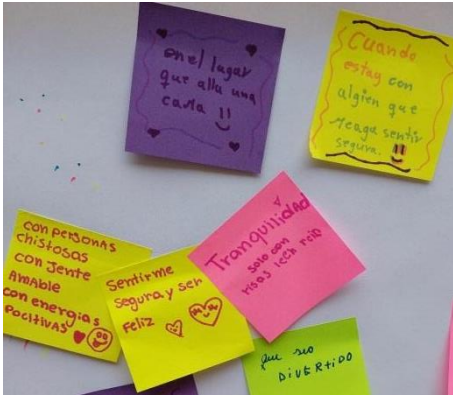 en el lugar
que alla una
cama
Cuando
estag con
algien que
meaga sentir
segura.
con personas
chistosas
con Jente
AmAble
con energias
Pocitivas
Sentirme
segura y ser
Feliz
TranquilidAd
solo con
risas
que seo
DIVERTIDO